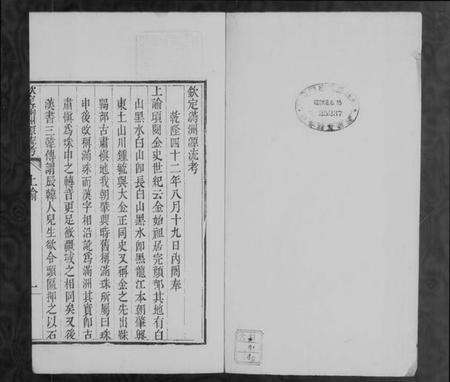 欽定滿洲源流考
乾隆四十二年八月十九日內閣奉
上諭頃閱金史世紀云金始祖居完顏部其地有白
山黑水白山即長白山黑水即黑龍江本朝肇興
東土山川鍾毓與大金正同史又稱金之先出靺
鞨部古肅慎地我朝肇興時舊稱滿珠所屬曰珠
申後改稱滿珠而漢字相沿訛為滿洲其實即古
肅慎為珠申之轉音更足徵疆域之相同矣又後
漢書三韓傳謂辰韓人兒生欲令頭匾押之以石
上諭
一